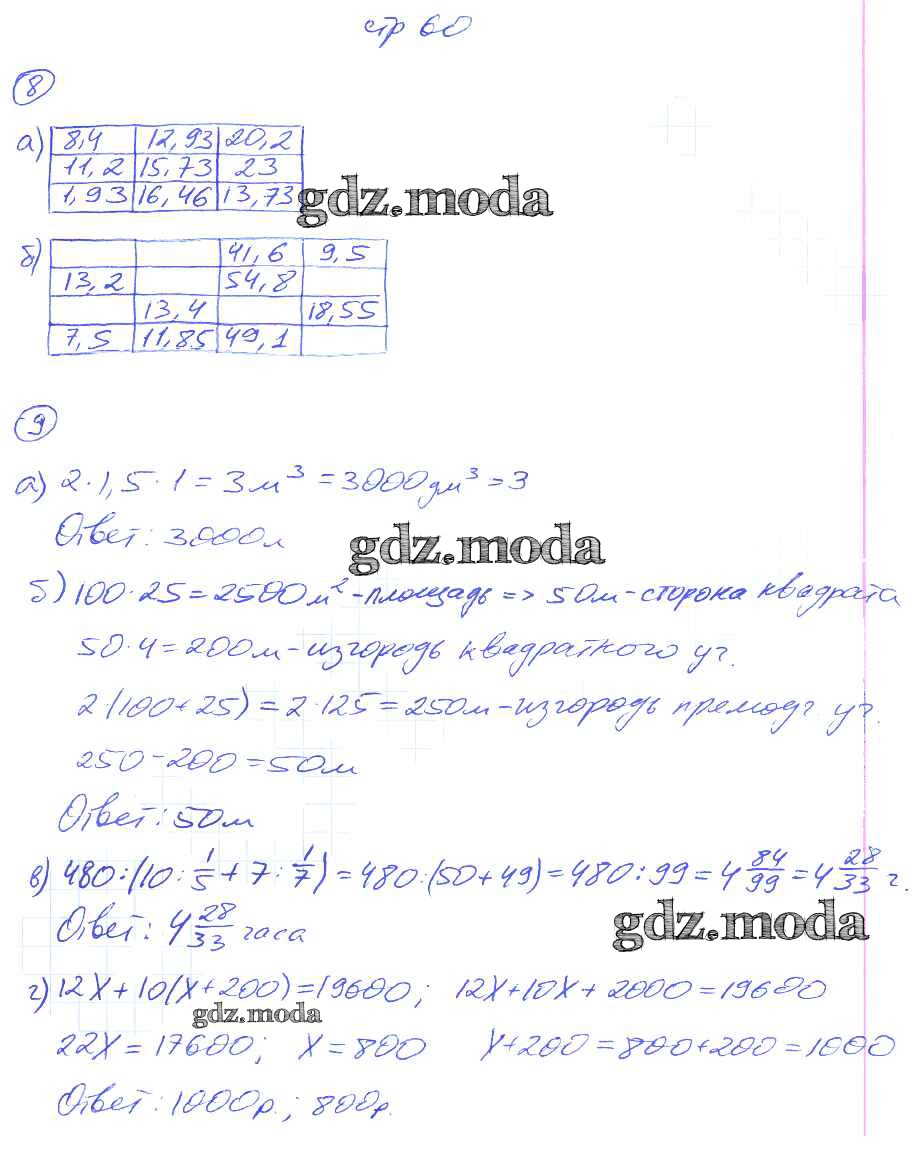 стр 60
8
а) 8,4 12,93 20,2
11,2 15,73 23
1,93 16,46 13,73
gdz.moda
б) 41,6 9,5
13,2 54,8
13,4 18,55
7,5 11,85 49,1
9
а) 2·1,5·1=3м³=3000дм³=3
Ответ: 3000л
gdz.moda
б) 100·25=2500м²-площадь=>50м-сторона квадрата
50·4=200м-изгородь квадратного уч.
2(100+25)=2·125=250м-изгородь премоуг уч.
250-200=50м
Ответ: 50м
в) 480:(10:1/5+7:1/7)=480:(50+49)=480:99=4 84/99=4 28/33 г.
Ответ: 4 28/33 часа
gdz.moda
г) 12X+10(X+200)=19600; 12X+10X+2000=19600
gdz.moda
22X=17600; X=800 X+200=800+200=1000
Ответ: 1000р.; 800р.